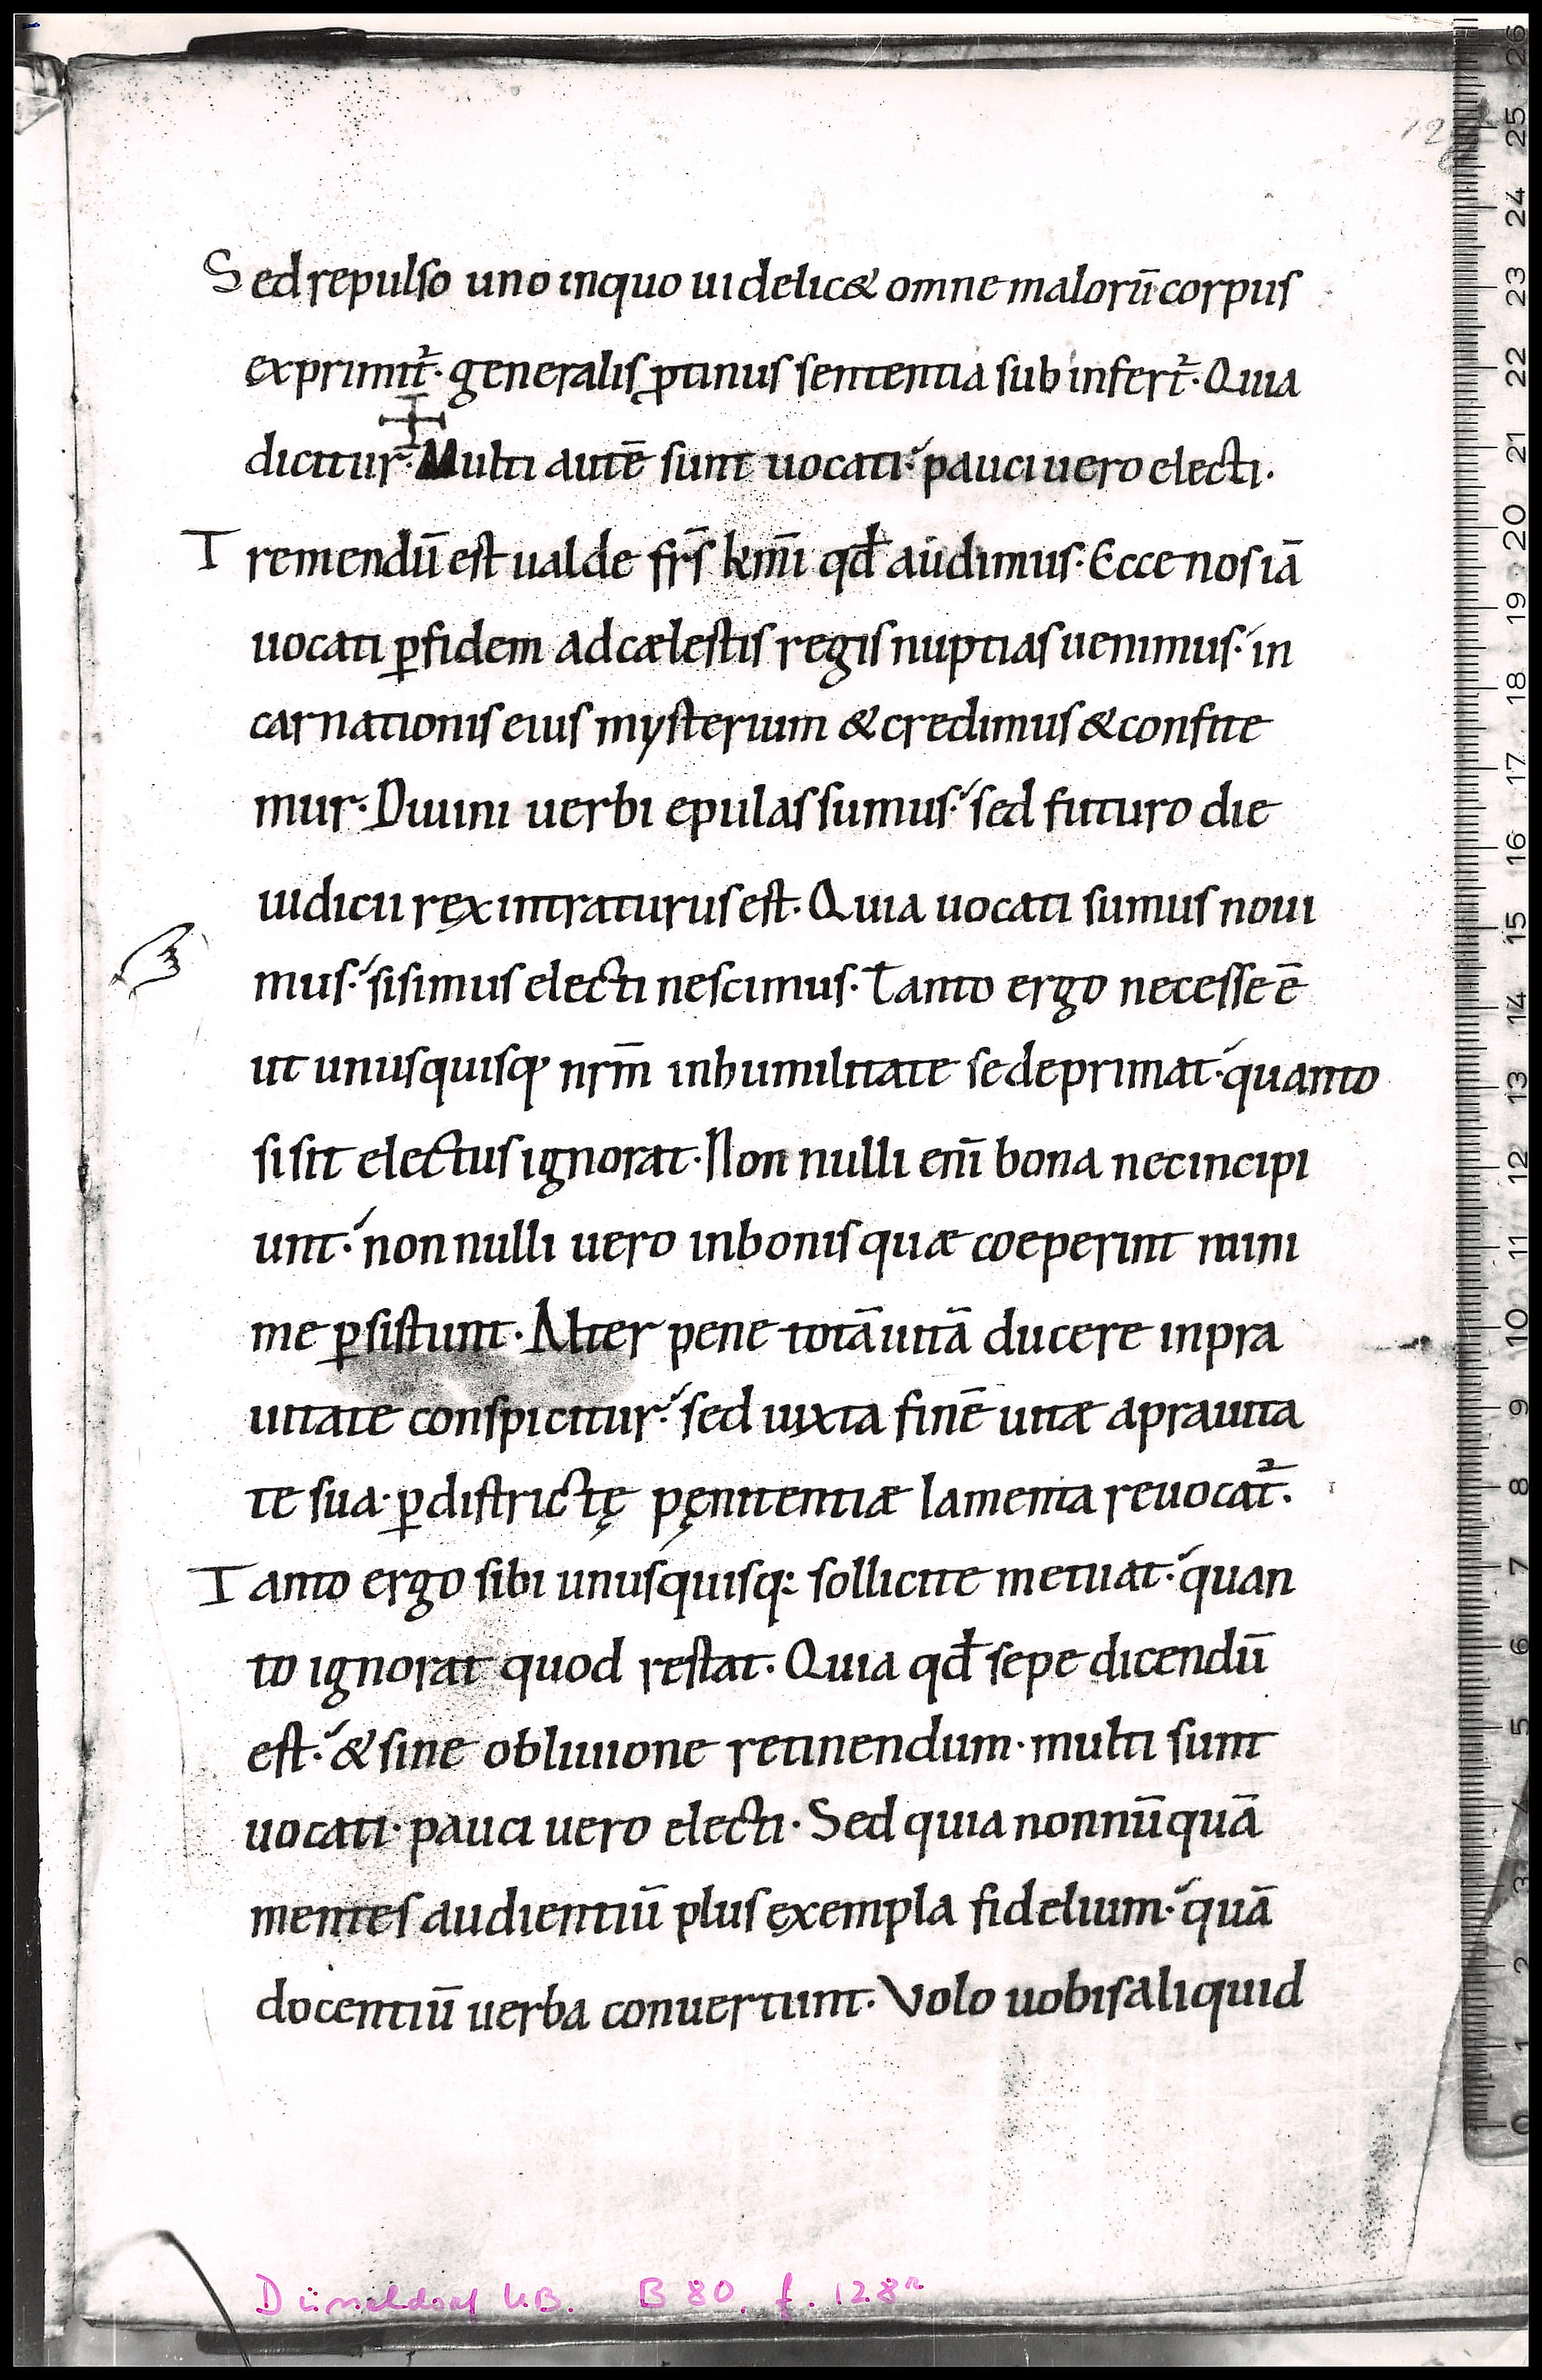 128
Sed repulso uno inquo uidelic& omne malorū corpus
exprimit̄. generalis ꝓtinus sententia sub infert̄. Quia
dicitur. Multi autē sunt uocati. pauci uero electi.
Tremendū est ualde fr̄s km̄i qđ audimus. Ecce nos iā
uocati ꝑfidem ad cælestis regis nuptias uenimus. in
carnationis eius mysterium & credimus & confite
mur. Diuini uerbi epulas sumus. sed futuro die
iudicii ręx intraturus est. Quia uocati sumus noui
mus. si simus electi nescimus. Tanto ergo necesse ē
ut unusquisq; nrm̄ in humilitate se deprimat. quanto
si sit electus ignorat. Non nulli eni̅ bona nec incipi
unt. non nulli uero in bonis quæ coeperint mini
me ꝑsistunt. Alter pene totā uitā ducere in pra
uitate conspicitur. sed iuxta finē uitæ a prauita
te sua. ꝑ districtę pęnitentiæ lamenta reuocat̄.
Tanto ergo sibi unusquisq: sollicite metuat. quan
to ignorat quod restat. Quia qđ sepe dicendū
est. & sine obliuione retinendum. multi sunt
uocati. pauci uero electi. Sed quia nonnūquā
mentes audientiū plus ęxempla fidelium. quā
docentiū uerba conuertunt. Volo uobis aliquid
Düsseldorf UB. B 80. f. 128r
0 1 2 3 4 5 6 7 8 9 10 11 12 13 14 15 16 17 18 19 20 21 22 23 24 25 26